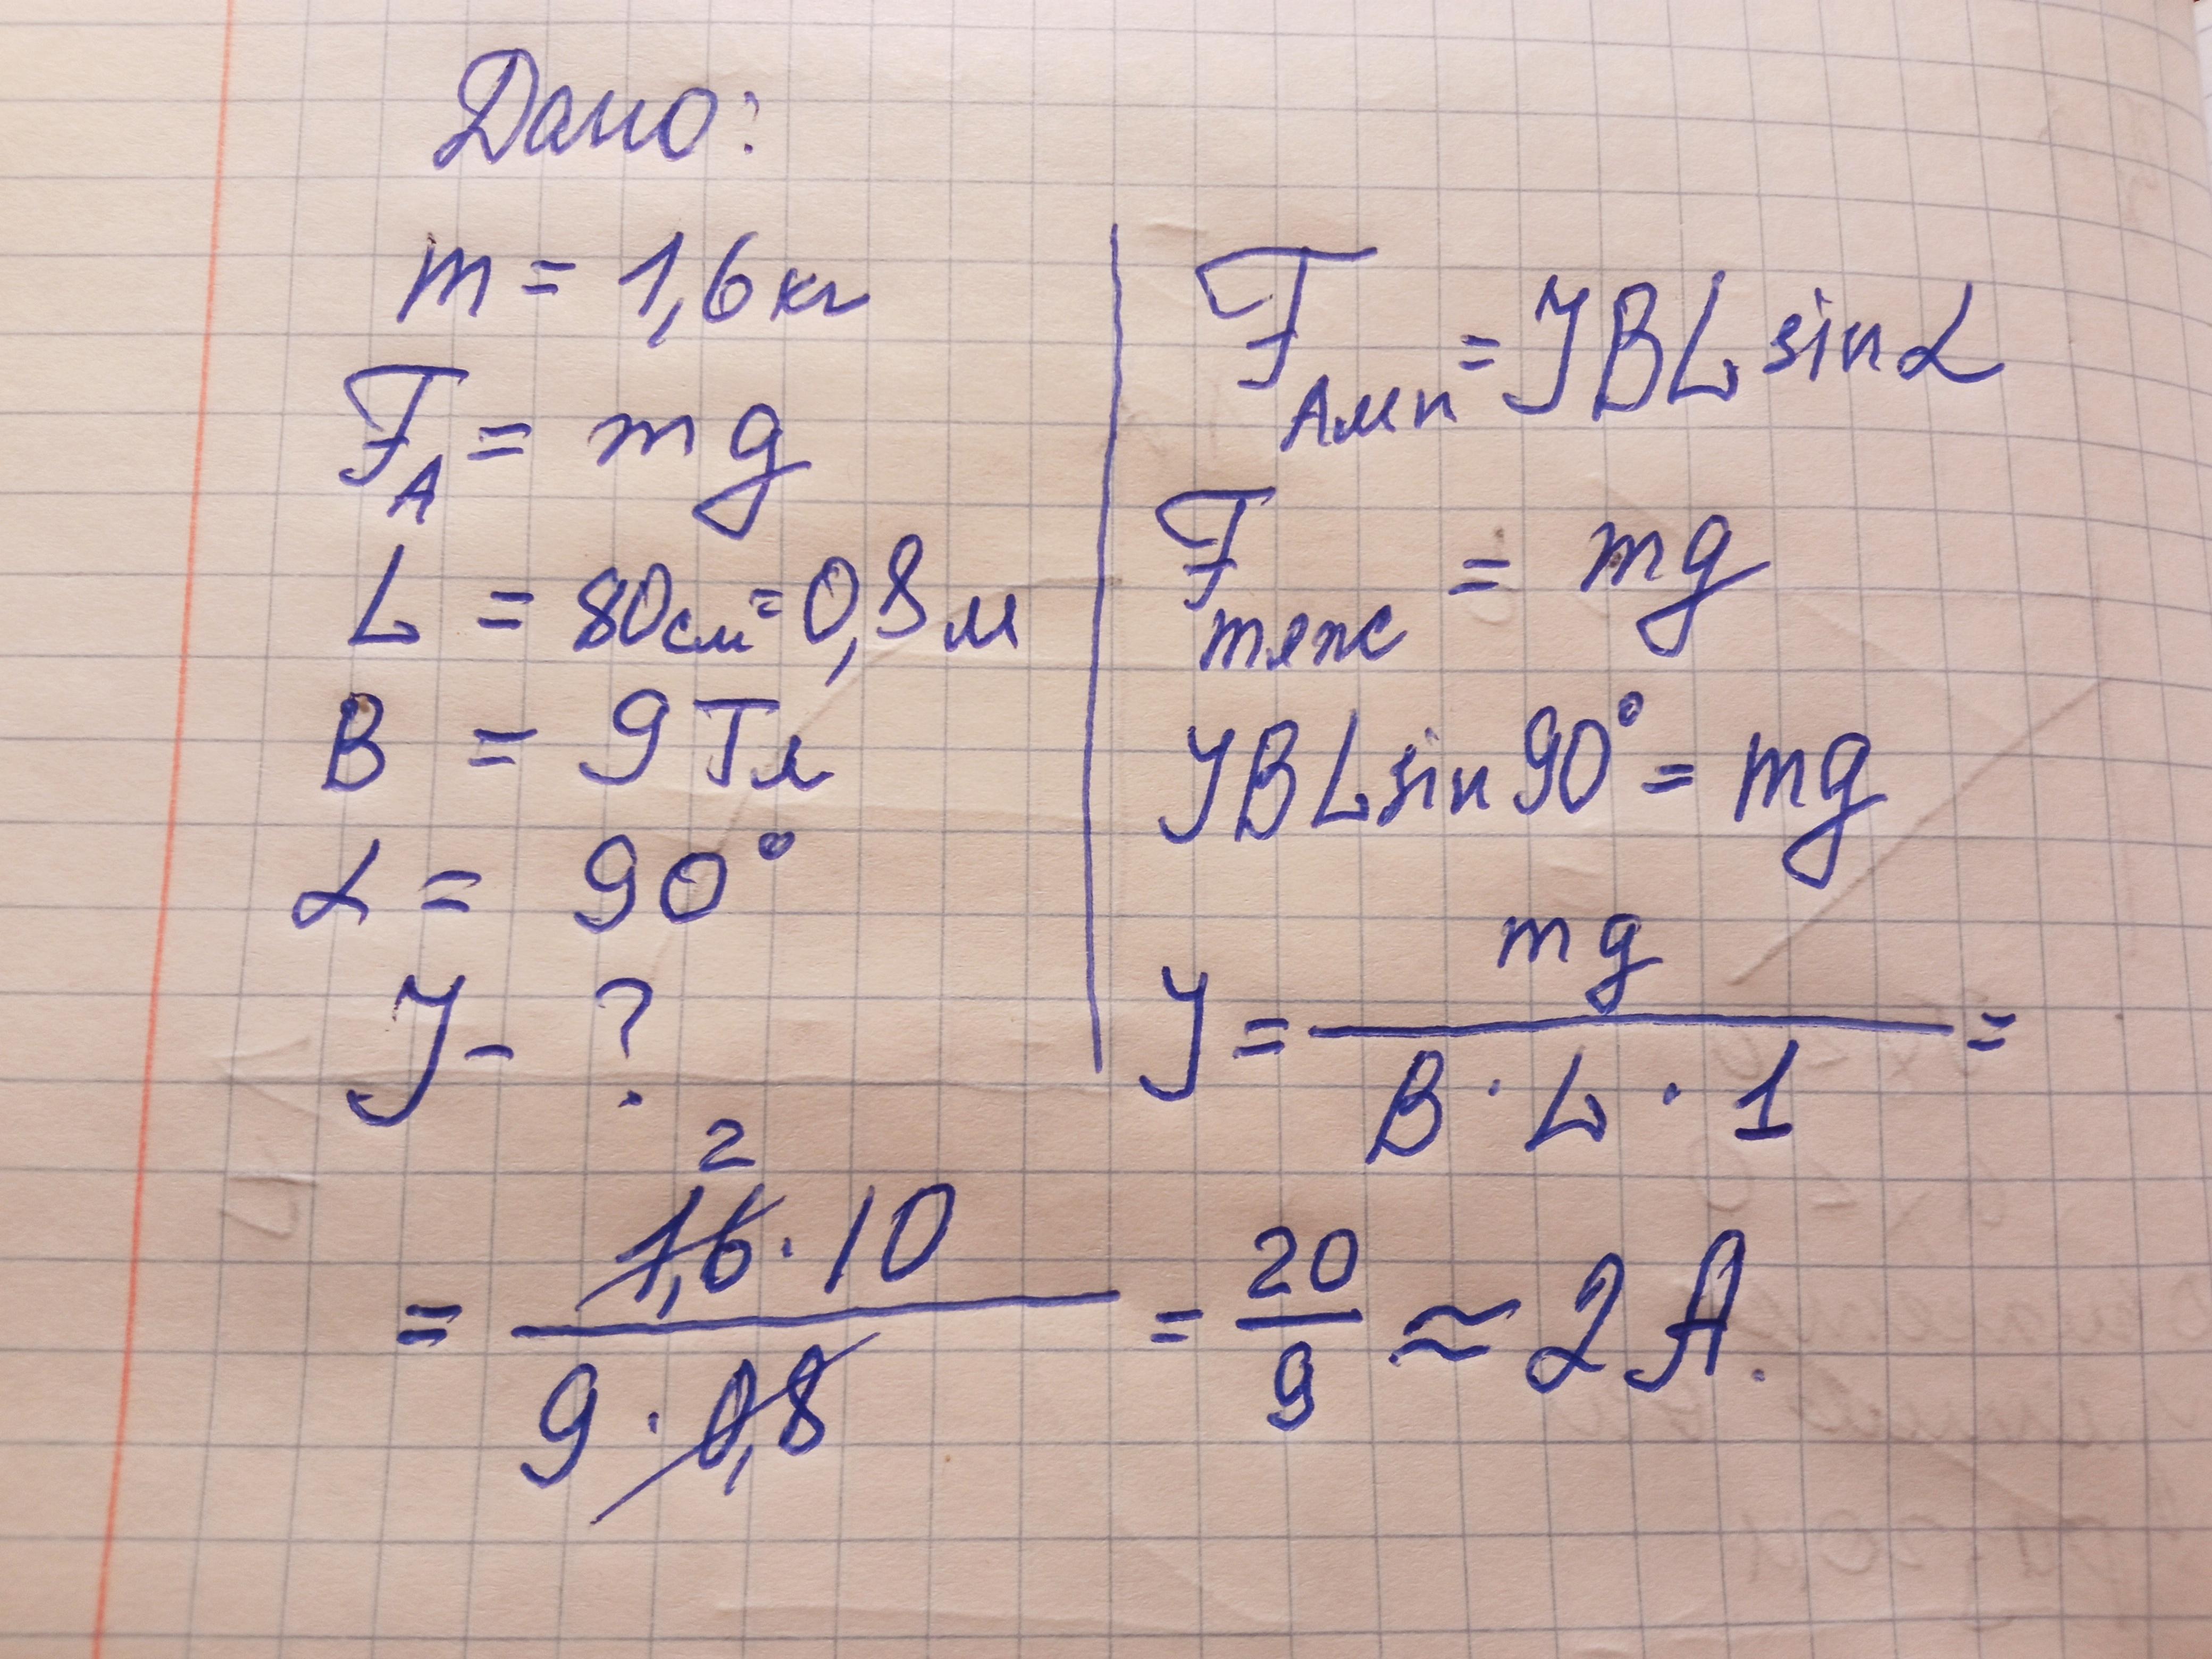 Дано:
m = 1,6 кг
F_A = mg
L = 80 см = 0,8 м
B = 9 Тл
α = 90°
I - ?
F_Амп = IBL sin α
F_тяж = mg
IBL sin 90° = mg
I = mg / (B · L · 1) =
= (1,6 · 10) / (9 · 0,8) = 20/9 ≈ 2 А.
2